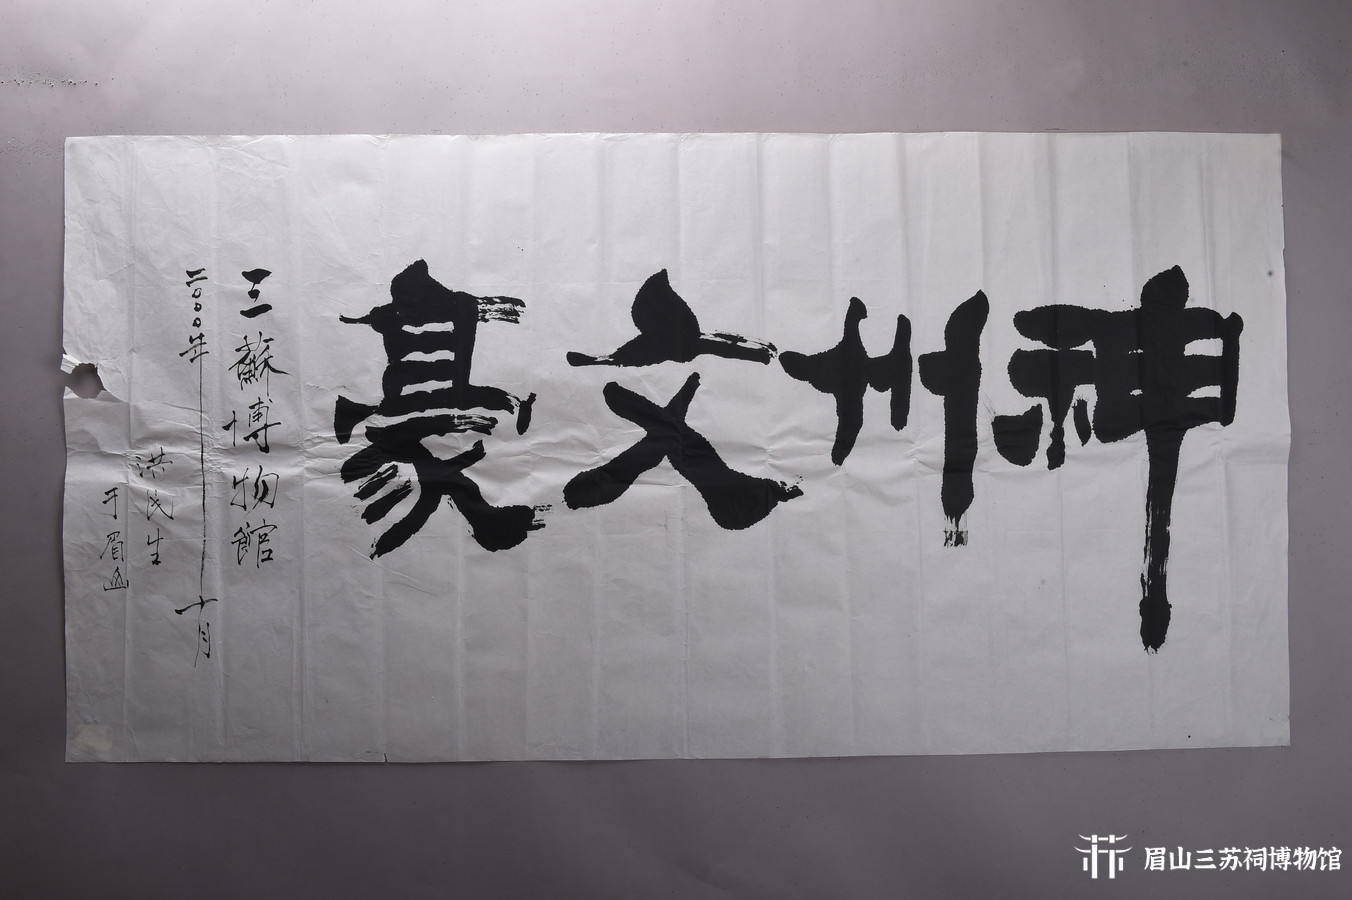 神州文豪
三蘇博物館
二〇〇〇年十月
洪民生
于眉山
眉山三苏祠博物馆